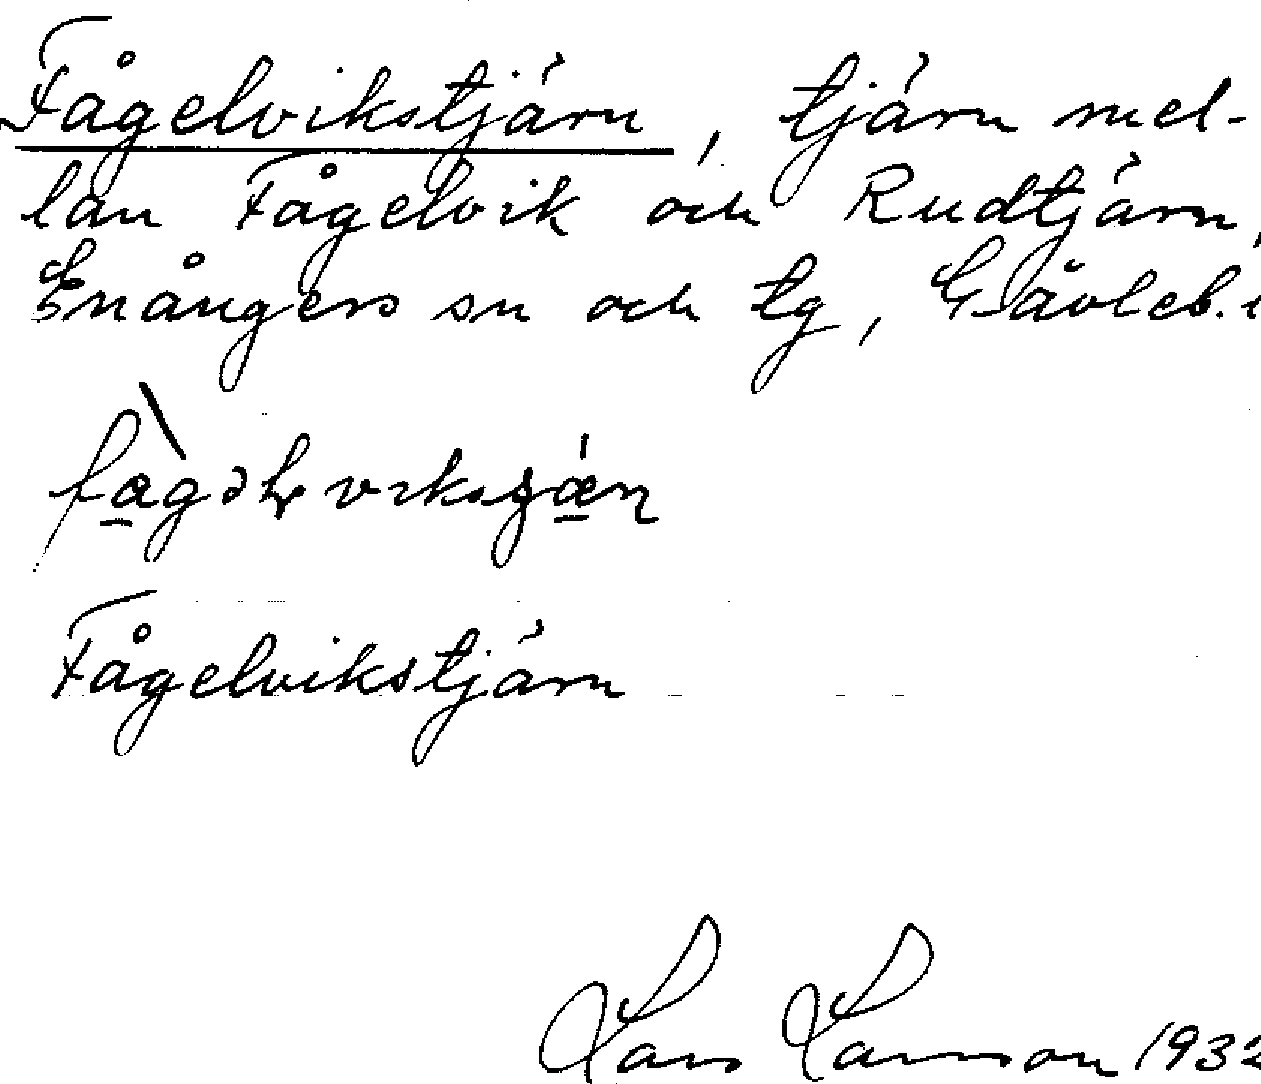 Fågelvikstjärn, tjärn mel-
lan Fågelvik och Rudtjärn,
Enångers sn och tg, Gävleb.
Fågelvikstjärn
Lars Larsson 1932